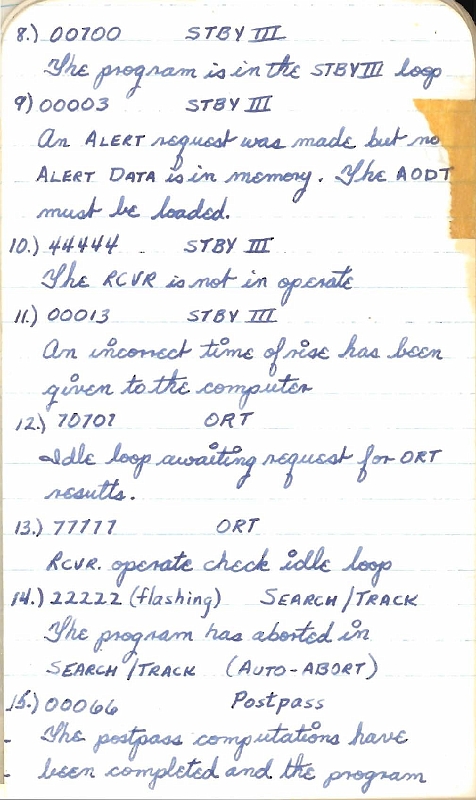 8.) 00700 STBY III
The program is in the STBY III loop
9) 00003 STBY III
An ALERT request was made but no
ALERT DATA is in memory. The AODT
must be loaded.
10.) 44444 STBY III
The RCVR is not in operate
11.) 00013 STBY III
An incorrect time of rise has been
given to the computer
12.) 70707 ORT
Idle loop awaiting request for ORT
results.
13.) 77777 ORT
RCVR. operate check idle loop
14.) 22222 (flashing) SEARCH/TRACK
The program has aborted in
SEARCH/TRACK (AUTO-ABORT)
15.) 00066 Postpass
- The postpass computations have
- been completed and the program